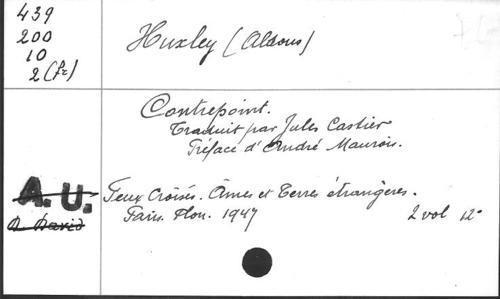 439
200
10
2 (fr)
Huxley (Aldous)
Contrepoint.
Traduit par Jules Castier
Préface d'André Maurois.
A.U.
Feux Croisés. Âmes et Terres étrangères.
A. David
Paris. Plon. 1947
2 vol 12°